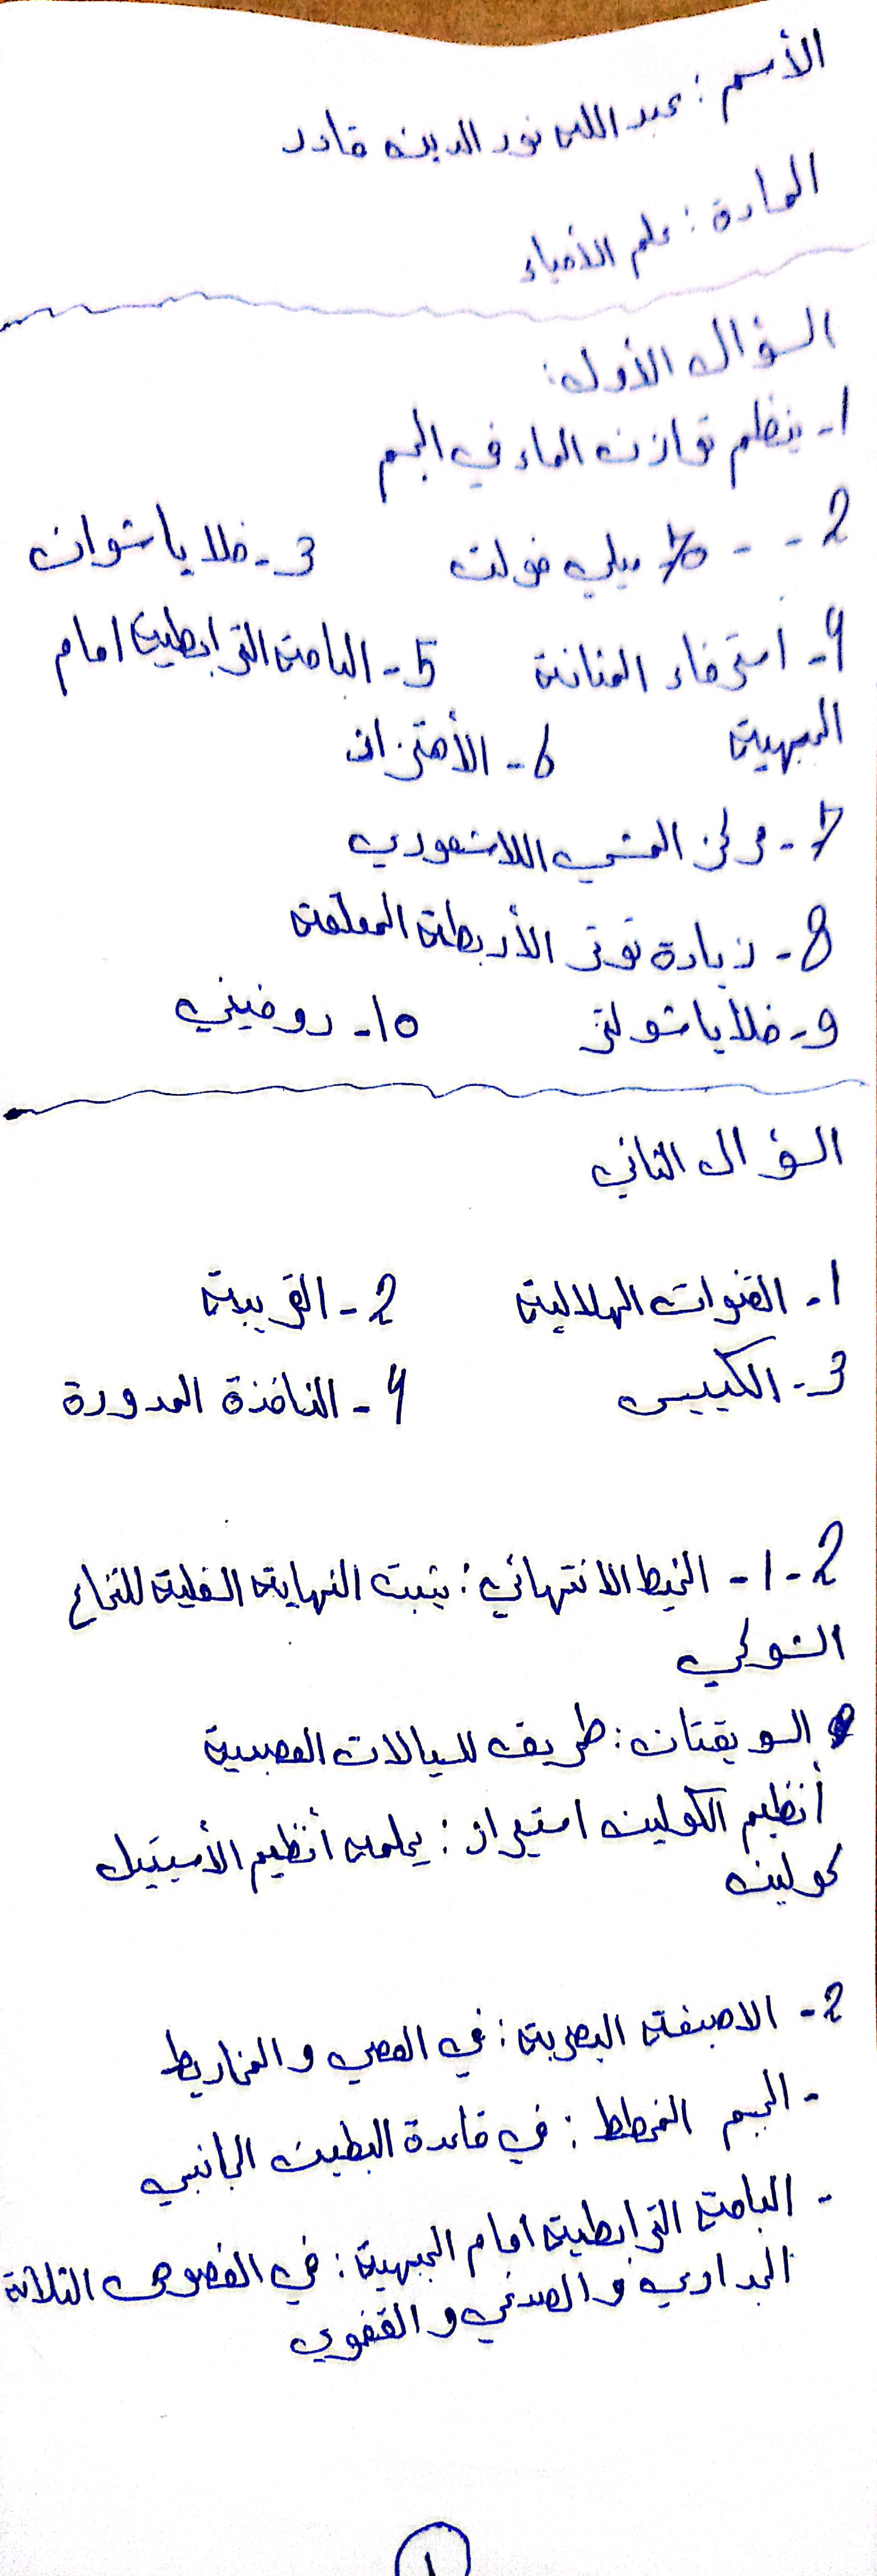 الأسم : عبد الله نور الدين قادر
المادة : علم الأحياء
السؤال الأول:
1- ينظم توازن الماء في الجسم
2 - - 70 ميلي فولت 3- خلايا شوان
4- استرخاء المثانة 5- الباحة الترابطية امام
الجبهية 6- الأهتزاز
7- مركز المشي اللاشعوري
8- زيادة توتر الأربطة المعلقة
9- خلايا شولتز 10- روفيني
السؤال الثاني
1- القنوات الهلالية 2- القريبة
3- الكييس 4- النافذة المدورة
2-1- الخيط الانتهائي : يثبت النهاية السفلية للنخاع
الشوكي
السويقتان : طريق للسيالات العصبية
أنظيم الكولين استيراز : يحلمه أنظيم الأسيتيل
كولين
2- الاصبغة البصرية : في العصي والمخاريط
- الجسم المخطط : في قاعدة البطين الجانبي
- الباحة الترابطية امام الجبهية : في الفصوص الثلاثة
الجداري والصدغي والقفوي
1